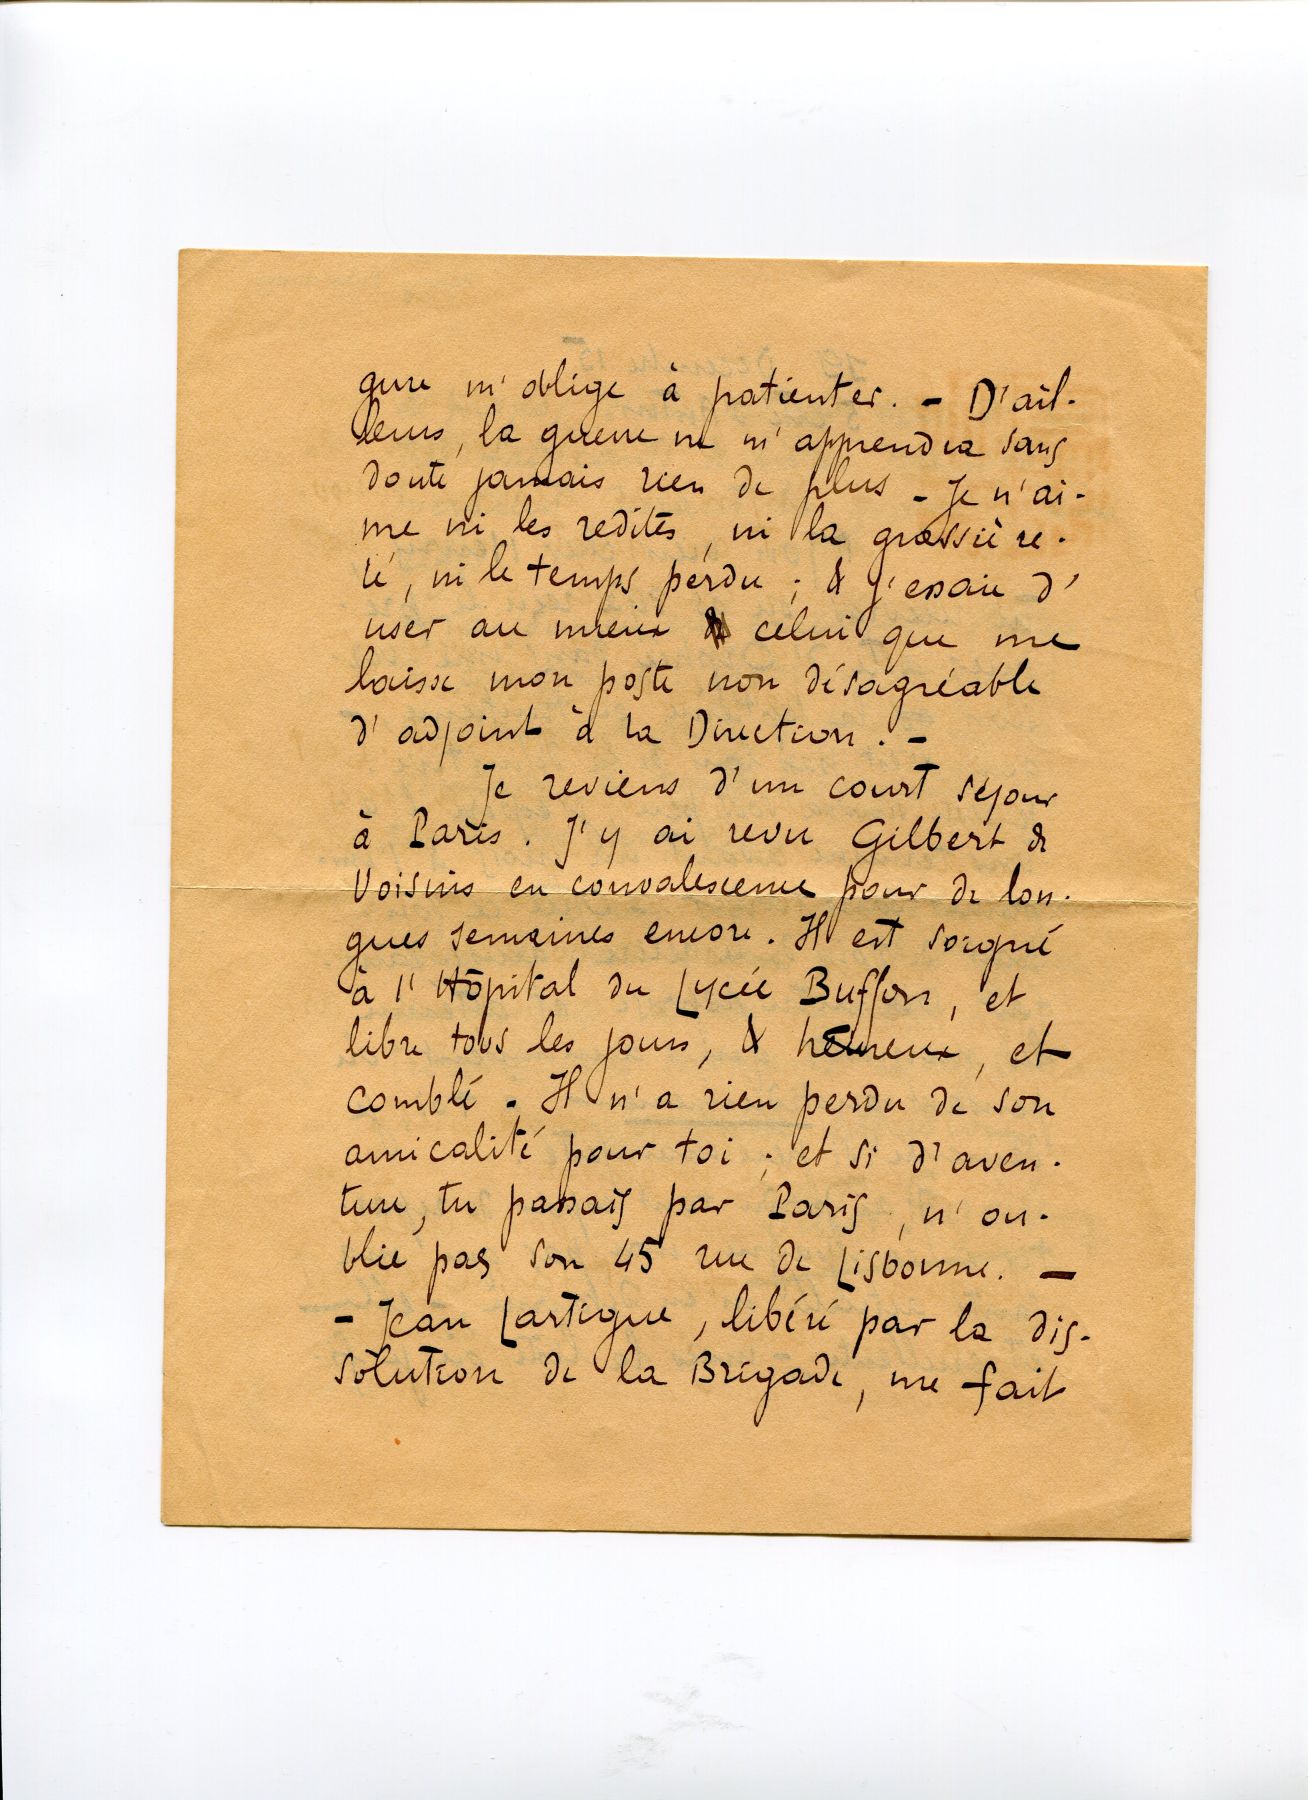 gure m'oblige à patienter. — D'ail-
leurs, la guerre ne m'apprendra sans
doute jamais rien de plus — Je n'ai-
me ni les redites, ni la grossière-
té, ni le temps perdu ; & j'essaie d'
user au mieux celui que me
laisse mon poste non désagréable
d'adjoint à la Direction. —
Je reviens d'un court séjour
à Paris. J'y ai revu Gilbert de
Voisins en convalescence pour de lon-
gues semaines encore. Il est soigné
à l'Hôpital du Lycée Buffon, et
libre tous les jours, & heureux, et
comblé. Il n'a rien perdu de son
amicalité pour toi ; et si d'aven-
ture, tu passais par Paris, n'ou-
blie pas son 45 rue de Lisbonne. —
— Jean Lartigue, libéré par la dis-
solution de la Brigade, me fait